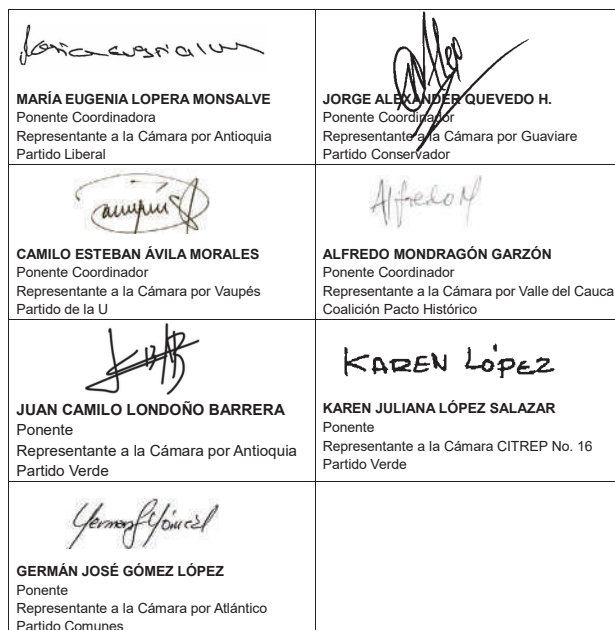 MARÍA EUGENIA LOPERA MONSALVE
Ponente Coordinadora
Representante a la Cámara por Antioquia
Partido Liberal
JORGE ALEXANDER QUEVEDO H.
Ponente Coordinador
Representante a la Cámara por Guaviare
Partido Conservador
CAMILO ESTEBAN ÁVILA MORALES
Ponente Coordinador
Representante a la Cámara por Vaupés
Partido de la U
Alfredo M
ALFREDO MONDRAGÓN GARZÓN
Ponente Coordinador
Representante a la Cámara por Valle del Cauca
Coalición Pacto Histórico
JUAN CAMILO LONDOÑO BARRERA
Ponente
Representante a la Cámara por Antioquia
Partido Verde
KAREN LÓPEZ
KAREN JULIANA LÓPEZ SALAZAR
Ponente
Representante a la Cámara CITREP No. 16
Partido Verde
GERMÁN JOSÉ GÓMEZ LÓPEZ
Ponente
Representante a la Cámara por Atlántico
Partido Comunes